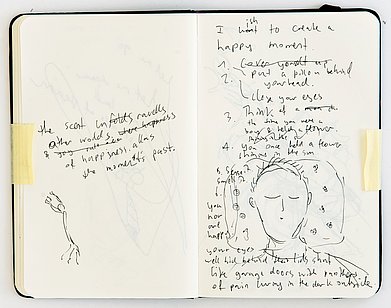 the scent unfolds ravells
other worlds where happiness
of happiness. alas
the moments past.
ish
I want to create a
happy moment
1. Cover yourself up
2. put a pillow behind
your head.
Close your eyes
3. Think of a
the time you were a
boy & held a flower.
4. You once held a flower
in the sun
5.
6.
you
now
are
happy
your eyes
well hid behind their lids shut
like garage doors with panthers
of pain living in the dark outside.